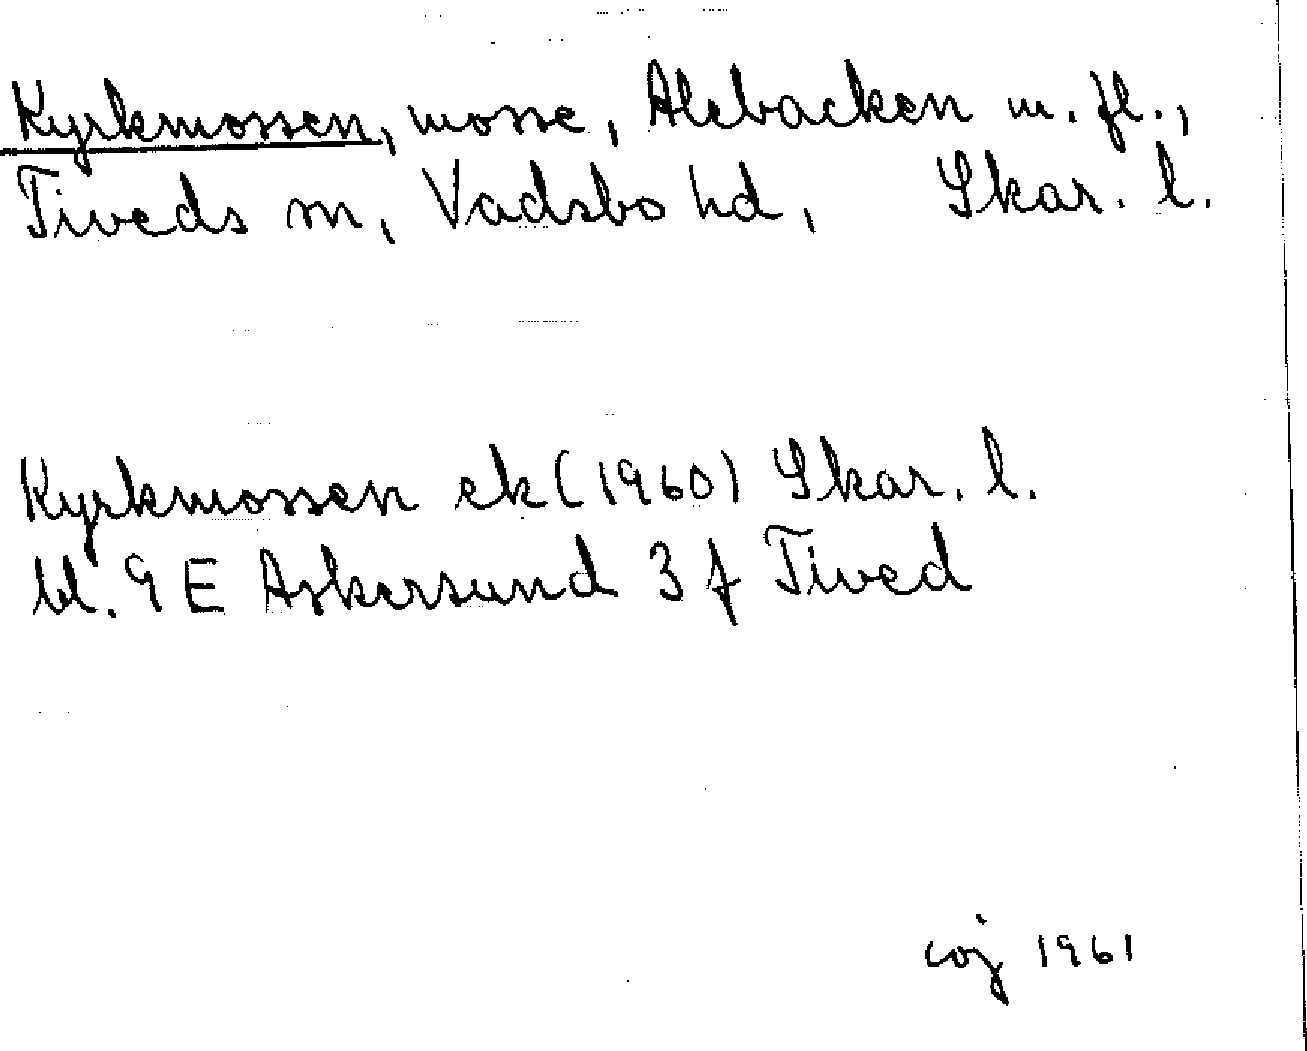 Kyrkmossen, mosse, Alebacken m. fl.,
Tiveds sn, Vadsbo hd, Skar. l.
Kyrkmossen ek (1960) Skar. l.
bl. 9 E Askersund 3 f Tived
coj 1961